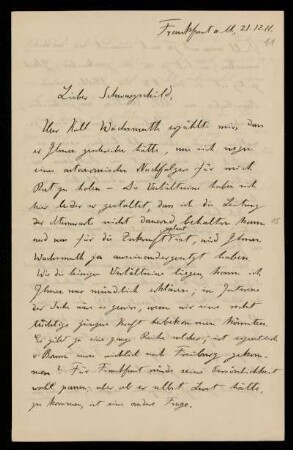 Frankfurt a. M., 21.12.11.
Lieber Schwarzschild,
Herr Koll. Wachsmuth erzählte mir, dass
er Ihnen geschrieben hätte, um sich wegen
eines astronomischen Nachfolgers für mich
Rat zu holen — Die Verhältnisse haben sich
hier leider so gestaltet, dass ich die Leitung
der Sternwarte nicht dauernd behalten kann
und was für die Zukunft geplant ist, wird Ihnen
Wachsmuth ja auseinandergesetzt haben.
Wie die hiesigen Verhältnisse liegen, kann ich
Ihnen nur mündlich erklären; im Interesse
der Sache wäre es gewiss, wenn wir eine recht
tüchtige jüngere Kraft herbekommen könnten.
Es gibt ja eine ganze Reihe solcher; ist eigentlich
nun wirklich nach Freiburg gekom-
men? Für Frankfurt würde seine Persönlichkeit
wohl passen; aber ob er selbst Lust hätte,
zu kommen, ist eine andere Frage.